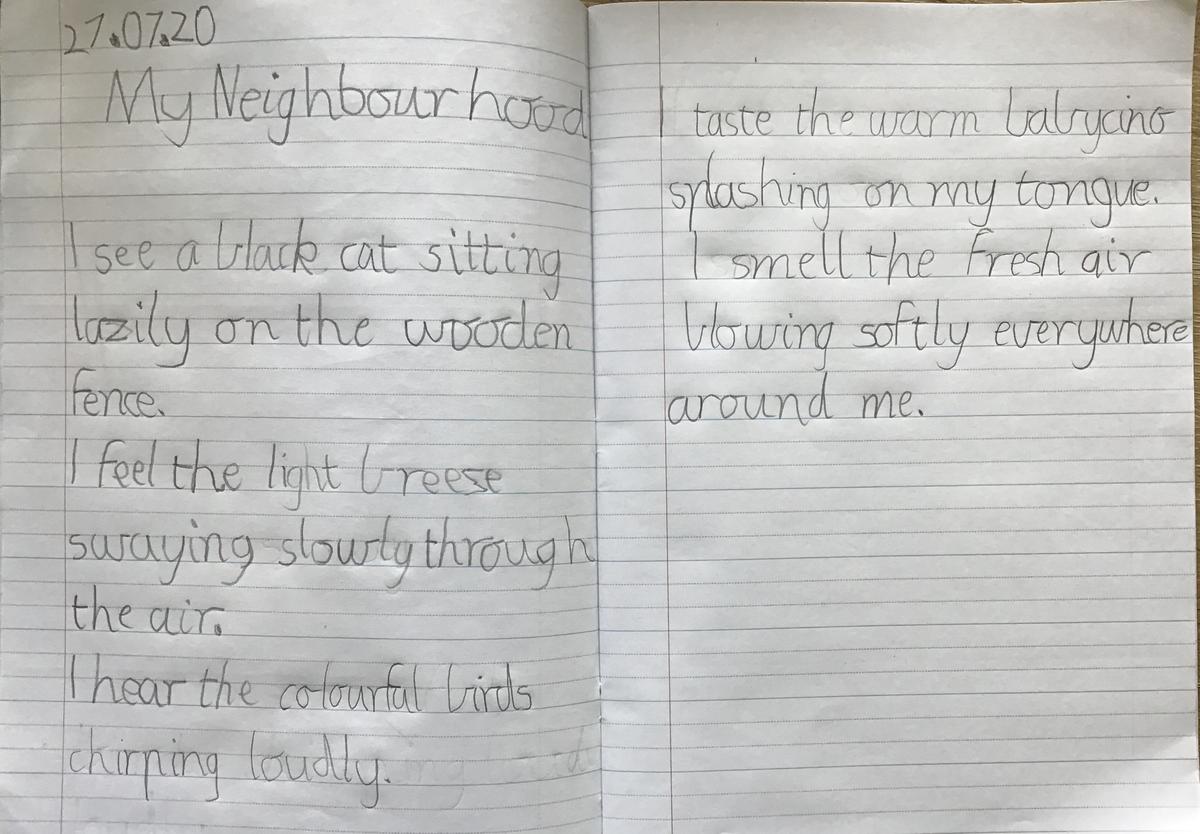 27.07.20
My Neighbourhood
I see a black cat sitting
lazily on the wooden
fence.
I feel the light breese
swaying slowly through
the air.
I hear the colourful birds
chirping loudly.
I taste the warm babycino
splashing on my tongue.
I smell the fresh air
blowing softly everywhere
around me.